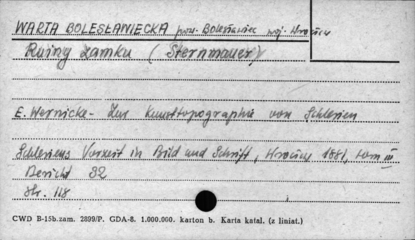 WARTA BOLESŁAWIECKA pow. Bolesławiec woj. Wrocław
Ruiny zamku (Sternmauer)
E. Wernicke - Zur Kunsttopographie von Schlesien
Schlesiens Vorzeit in Bild und Schrift, Wrocław 1881, tom III
Bericht 32
Str. 118
CWD B-15b.zam. 2899/P. GDA-8. 1.000.000. karton b. Karta katal. (z liniat.)